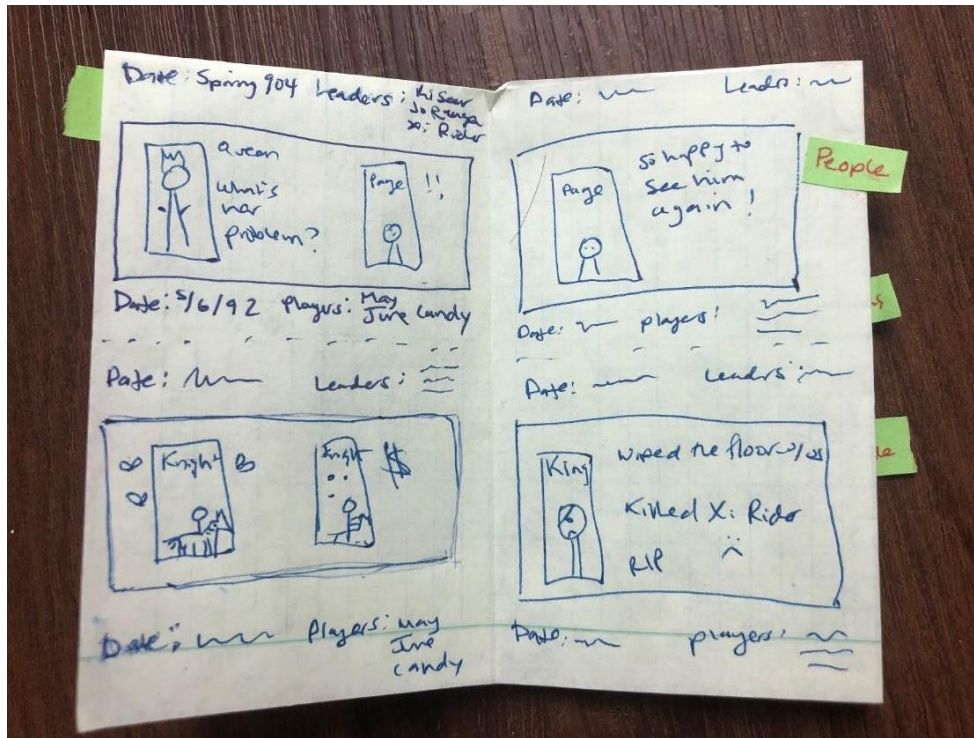 Date: Spring 904 Leaders: Hi Seer
Jo Ranga
Xi Rider
Queen
What's
her
problem?
Page !!
Date: 5/6/92 Players: May
June Candy
Date: Leaders:
Knight
Knight $
Date: Players: May
June
Candy
Date: Leaders:
Page
So happy to
see him
again!
Date: players:
Date: Leaders:
King
Wiped the floor w/ us
Killed Xi Rider
RIP
Date: players:
People